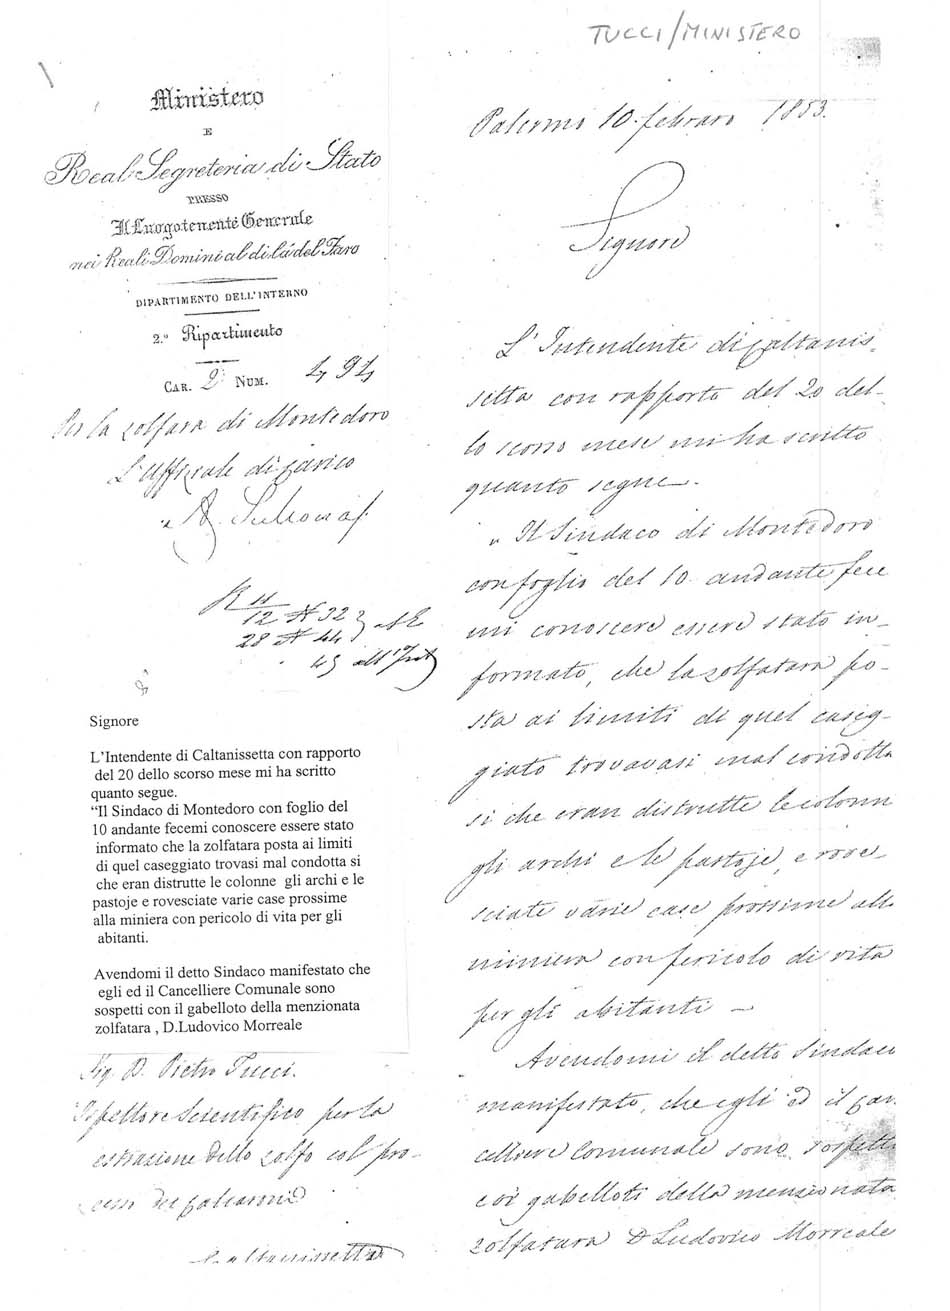 TUCCI/MINISTERO
Ministero
E
Real Segreteria di Stato
PRESSO
Il Luogotenente Generale
nei Reali Domini al di là del Faro
DIPARTIMENTO DELL'INTERNO
2.º Ripartimento
CAR. 2ª NUM. 494
Per la zolfara di Montedoro
L'Uffiziale di carico
12 N 32
28 N 44
45 all'Int
Signore
L'Intendente di Caltanissetta con rapporto
del 20 dello scorso mese mi ha scritto
quanto segue.
“Il Sindaco di Montedoro con foglio del
10 andante fecemi conoscere essere stato
informato che la zolfatara posta ai limiti
di quel caseggiato trovasi mal condotta si
che eran distrutte le colonne gli archi e le
pastoje e rovesciate varie case prossime
alla miniera con pericolo di vita per gli
abitanti.
Avendomi il detto Sindaco manifestato che
egli ed il Cancelliere Comunale sono
sospetti con il gabelloto della menzionata
zolfatara , D.Ludovico Morreale
Sig. D. Pietro Tucci.
Ispettore Scientifico per la
estrazione dello zolfo col pro-
cesso dei calcaroni
Caltanissetta
Palermo 10 febraro 1853.
Signore
L'Intendente di Caltanis-
setta con rapporto del 20 del-
lo scorso mese mi ha scritto
quanto segue.
„ Il Sindaco di Montedoro
con foglio del 10 andante fece
mi conoscere essere stato in-
formato, che la zolfatara po-
sta ai limiti di quel caseg-
giato trovavasi mal condotta
si che eran distrutte le colonn
gli archi e le pastoje, e rove-
sciate varie case prossime all
miniera con pericolo di vita
per gli abitanti —
Avendomi il detto Sindaco
manifestato, che egli ed il Can
celliere Comunale sono sospetti
coi gabelloti della menzionata
zolfatara D Ludovico Morreale